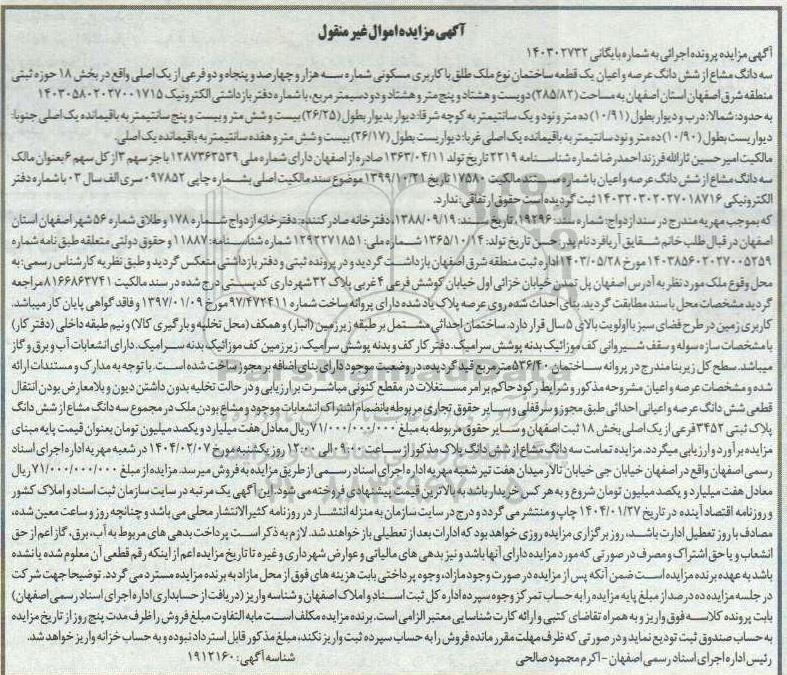 آگهی مزایده اموال غیر منقول
آگهی مزایده پرونده اجرائی به شماره بایگانی ۱۴۰۳۰۲۷۳۲
سه دانگ مشاع از شش دانگ عرصه و اعیان یک قطعه ساختمان نوع ملک طلق با کاربری مسکونی شماره سه هزار و چهارصد و پنجاه و دو فرعی از یک اصلی واقع در بخش ۱۸ حوزه ثبتی
منطقه شرق اصفهان استان اصفهان به مساحت (۲۸۵/۸۲) دویست و هشتاد و پنج متر و هشتاد و دو دسیمتر مربع، با شماره دفتر بازداشتی الکترونیک ۱۴۰۳۰۵۸۰۲۰۲۷۰۰۱۷۱۵
به حدود: شمالا: درب و دیوار بطول (۱۰/۹۱) ده متر و نود و یک سانتیمتر به کوچه شرقا: دیوار بدیوار بطول (۲۶/۲۵) بیست و شش متر و بیست و پنج سانتیمتر به باقیمانده یک اصلی جنوبا:
دیواریست بطول (۱۰/۹۰) ده متر و نود سانتیمتر به باقیمانده یک اصلی غربا: دیواریست بطول (۲۶/۱۷) بیست و شش متر و هفده سانتیمتر به باقیمانده یک اصلی.
مالکیت امیر حسین ثارالله فرزند احمدرضا شماره شناسنامه ۲۲۱۹ تاریخ تولد ۱۳۶۳/۰۴/۱۱ صادره از اصفهان دارای شماره ملی ۱۲۸۷۳۶۲۵۳۹ با جز سهم ۳ از کل سهم ۶ بعنوان مالک
سه دانگ مشاع از شش دانگ عرصه و اعیان با شماره مستند مالکیت ۱۷۵۸۰ تاریخ ۱۳۹۹/۱۰/۲۱ موضوع سند مالکیت اصلی بشماره چاپی ۰۹۷۸۵۲ سری الف سال ۰۳ با شماره دفتر
الکترونیکی ۱۴۰۳۲۰۳۰۲۰۲۷۰۱۸۷۱۶ ثبت گردیده است حقوق ارتفاقی: ندارد.
که بموجب مهریه مندرج در سند ازدواج: شماره سند: ۱۹۲۹۶، تاریخ سند: ۱۳۸۸/۰۹/۱۹، دفترخانه صادرکننده: دفترخانه ازدواج شماره ۱۷۸ و طلاق شماره ۵۶ شهر اصفهان استان
اصفهان در قبال طلب خانم شقایق آریافر نام پدر: حسن تاریخ تولد: ۱۳۶۵/۱۰/۱۴ شماره ملی: ۱۲۹۲۲۷۱۸۵۱ شماره شناسنامه: ۱۱۸۸۷ و حقوق دولتی متعلقه طبق نامه شماره
۱۴۰۳۸۵۶۰۲۰۲۷۰۰۵۲۵۹ مورخ ۱۴۰۳/۰۵/۲۸ اداره ثبت منطقه شرق اصفهان بازداشت گردید و در پرونده ثبتی و دفتر بازداشتی منعکس گردید و طبق نظریه کارشناس رسمی: به
محل وقوع ملک مورد نظر به آدرس اصفهان پل تمدن خیابان خزائی اول خیابان کوشش فرعی ۴ غربی پلاک ۳۲ شهرداری کدپستی درج شده در سند مالکیت ۸۱۶۶۸۶۳۷۴۱ مراجعه
گردید مشخصات محل با سند مطابقت گردید. بنای احداث شده روی عرصه پلاک یاد شده دارای پروانه ساخت شماره ۹۷/۴۷۲۴۱۱ مورخ ۱۳۹۷/۰۱/۰۹ و فاقد گواهی پایان کار میباشد.
کاربری زمین در طرح فضای سبز با اولویت بالای ۵ سال قرار دارد. ساختمان احداثی مشتمل بر طبقه زیرزمین (انبار) و همکف (محل تخلیه و بارگیری کالا) و نیم طبقه داخلی (دفتر کار)
با مشخصات سازه سوله و سقف شیروانی کف موزائیک بدنه پوشش سرامیک. دفتر کار کف و بدنه پوشش سرامیک. زیرزمین کف موزائیک بدنه سرامیک. دارای انشعابات آب و برق و گاز
میباشد. سطح کل زیربنا مندرج در پروانه ساختمان ۵۳۶/۴۰ متر مربع قید گردیده. در وضعیت موجود دارای بنای اضافه بر مجوز ساخت شده است. با توجه به مدارک و مستندات ارائه
شده و مشخصات عرصه و اعیان مشروحه مذکور و شرایط رکود حاکم بر امر مستغلات در مقطع کنونی مباشرت بر ارزیابی و در حالت تخلیه بدون داشتن دیون و بلامعارض بودن انتقال
قطعی شش دانگ عرصه و اعیانی احداثی طبق مجوز و سرقفلی و سایر حقوق تجاری مربوطه بانضمام اشتراک انشعابات موجود و مشاع بودن ملک در مجموع سه دانگ مشاع از شش دانگ
پلاک ثبتی ۳۴۵۲ فرعی از یک اصلی بخش ۱۸ ثبت اصفهان و سایر حقوق مربوطه به مبلغ ۷۱/۰۰۰/۰۰۰/۰۰۰ ریال معادل هفت میلیارد و یکصد میلیون تومان بعنوان قیمت پایه مبنای
مزایده برآورد و ارزیابی میگردد. مزایده تمامت سه دانگ مشاع از شش دانگ پلاک مذکور از ساعت ۰۹:۰۰ الی ۱۲:۰۰ روز یکشنبه مورخ ۱۴۰۴/۰۲/۰۷ در شعبه مهریه اداره اجرای اسناد
رسمی اصفهان واقع در اصفهان خیابان جی خیابان تالار میدان هفت تیر شعبه مهریه اداره اجرای اسناد رسمی از طریق مزایده به فروش میرسد. مزایده از مبلغ ۷۱/۰۰۰/۰۰۰/۰۰۰ ریال
معادل هفت میلیارد و یکصد میلیون تومان شروع و به هر کس خریدار باشد به بالاترین قیمت پیشنهادی فروخته می شود. این آگهی یک مرتبه در سایت سازمان ثبت اسناد و املاک کشور
و روزنامه اقتصاد آینده در تاریخ ۱۴۰۴/۰۱/۲۷ چاپ و منتشر می گردد و درج در سایت سازمان به منزله انتشار در روزنامه کثیرالانتشار محلی می باشد و چنانچه روز و ساعت معین شده،
مصادف با روز تعطیل ادارت باشد، روز برگزاری مزایده روزی خواهد بود که ادارات بعد از تعطیلی باز خواهند شد. لازم به ذکر است پرداخت بدهی های مربوط به آب، برق، گاز اعم از حق
انشعاب و یا حق اشتراک و مصرف در صورتی که مورد مزایده دارای آنها باشد و نیز بدهی های مالیاتی و عوارض شهرداری و غیره تا تاریخ مزایده اعم از اینکه رقم قطعی آن معلوم شده یا نشده
باشد به عهده برنده مزایده است ضمن آنکه پس از مزایده در صورت وجود مازاد، وجوه پرداختی بابت هزینه های فوق از محل مازاد به برنده مزایده مسترد می گردد. توضیحا جهت شرکت
در جلسه مزایده ده درصد از مبلغ پایه مزایده را به حساب تمرکز وجوه سپرده اداره کل ثبت اسناد و املاک اصفهان و شناسه واریز (دریافت از حسابداری اداره اجرای اسناد رسمی اصفهان)
بابت پرونده کلاسه فوق واریز و به همراه تقاضای کتبی و ارائه کارت شناسایی معتبر الزامی است. برنده مزایده مکلف است مابه التفاوت مبلغ فروش را ظرف مدت پنج روز از تاریخ مزایده
به حساب صندوق ثبت تودیع نماید و در صورتی که ظرف مهلت مقرر مانده فروش را به حساب سپرده ثبت واریز نکند، مبلغ مذکور قابل استرداد نبوده و به حساب خزانه واریز خواهد شد.
رئیس اداره اجرای اسناد رسمی اصفهان - اکرم محمود صالحی شناسه آگهی: ۱۹۱۲۱۶۰